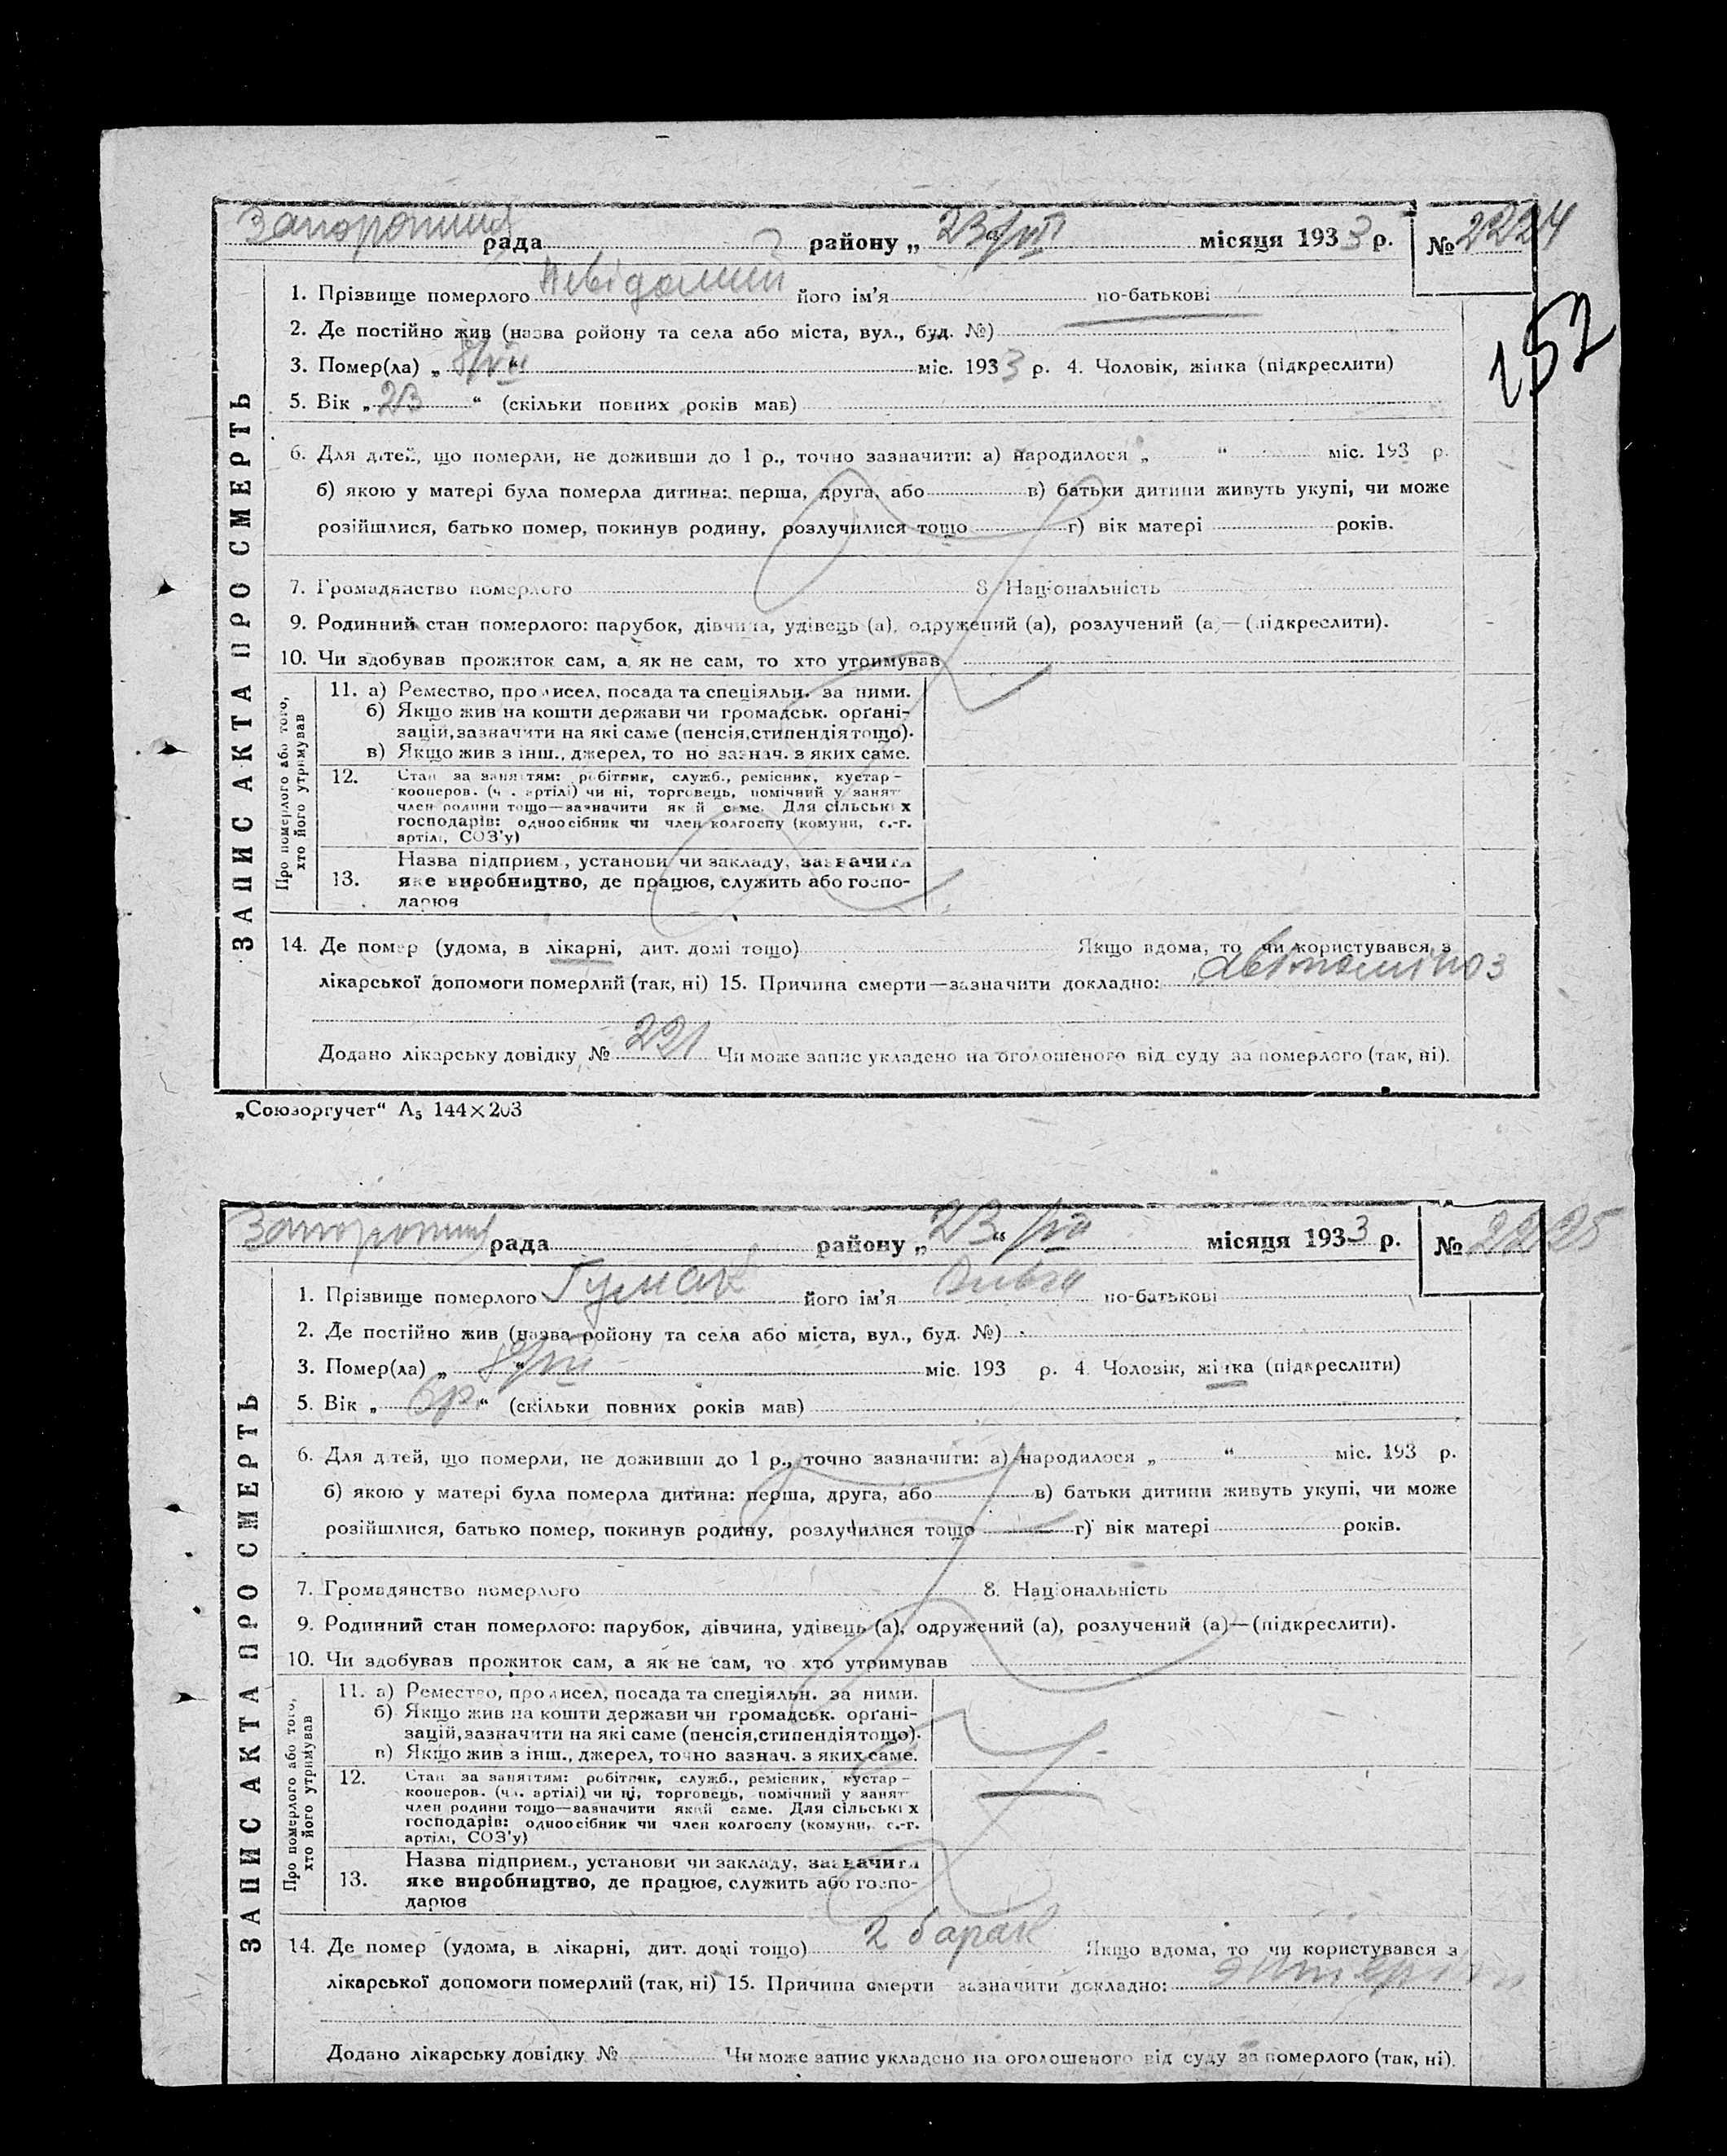 Запороший рада району „ 23 " VII місяця 1933 р. № 2224
152
1. Прізвище померлого Невідомий його ім'я по-батькові
2. Де постійно жив (назва ройону та села або міста, вул., буд. №)
3. Помер(ла) „ 8/VII " міс. 1933 р. 4. Чоловік, жінка (підкреслити)
5. Вік „ 23 " (скільки повних років мав)
6. Для дітей, що померли, не доживши до 1 р., точно зазначити: а) народилося „ " міс. 193 р.
б) якою у матері була померла дитина: перша, друга, або в) батьки дитини живуть укупі, чи може
розійшлися, батько помер, покинув родину, розлучилися тощо г) вік матері років.
7. Громадянство померлого 8. Національність
9. Родинний стан померлого: парубок, дівчина, удівець (а), одружений (а), розлучений (а)—(підкреслити).
10. Чи здобував прожиток сам, а як не сам, то хто утримував
ЗАПИС АКТА ПРО СМЕРТЬ
Про померлого або того,
хто його утримував
11. а) Ремество, промисел, посада та спеціяльн. за ними.
б) Якщо жив на кошти держави чи громадськ. органі-
зацій, зазначити на які саме (пенсія, стипендія тощо).
в) Якщо жив з інш., джерел, точно зазнач. з яких саме.
12. Стан за заняттям: робітник, служб., ремісник, кустар-
кооперов. (чл. артілі) чи ні, торговець, помічний у занят
член родини тощо—зазначити який саме. Для сільських
господарів: одноосібник чи член колгоспу (комуни, с.-г.
артілі, СОЗ'у)
13. Назва підприєм., установи чи закладу, зазначити
яке виробництво, де працює, служить або госпо-
дарює
14. Де помер (удома, в лікарні, дит. домі тощо) Якщо вдома, то чи користувався з
лікарської допомоги померлий (так, ні) 15. Причина смерти—зазначити докладно: авітаміноз
Додано лікарську довідку № 221 Чи може запис укладено на оголошеного від суду за померлого (так, ні).
„Союзоргучет“ А5 144×203
рада району „ 23 " VII місяця 1933 р. № 2225
1. Прізвище померлого Гумак його ім'я по-батькові
2. Де постійно жив (назва ройону та села або міста, вул., буд. №)
3. Помер(ла) „ 8/VII " міс. 193 р. 4 Чоловік, жінка (підкреслити)
5. Вік „ 6 р. " (скільки повних років мав)
6. Для дітей, що померли, не доживши до 1 р., точно зазначити: а) народилося „ " міс. 193 р.
б) якою у матері була померла дитина: перша, друга, або в) батьки дитини живуть укупі, чи може
розійшлися, батько помер, покинув родину, розлучилися тощо г) вік матері років.
7. Громадянство померлого 8. Національність
9. Родинний стан померлого: парубок, дівчина, удівець (а), одружений (а), розлучений (а)—(підкреслити).
10. Чи здобував прожиток сам, а як не сам, то хто утримував
ЗАПИС АКТА ПРО СМЕРТЬ
Про померлого або того,
хто його утримував
11. а) Ремество, промисел, посада та спеціяльн. за ними.
б) Якщо жив на кошти держави чи громадськ. органі-
зацій, зазначити на які саме (пенсія, стипендія тощо).
в) Якщо жив з інш., джерел, точно зазнач. з яких саме.
12. Стан за заняттям: робітник, служб., ремісник, кустар-
кооперов. (чл. артілі) чи ні, торговець, помічний у занят
член родини тощо—зазначити який саме. Для сільських
господарів: одноосібник чи член колгоспу (комуни, с.-г.
артілі, СОЗ'у)
13. Назва підприєм., установи чи закладу, зазначити
яке виробництво, де працює, служить або госпо-
дарює
14. Де помер (удома, в лікарні, дит. домі тощо) 2 барак Якщо вдома, то чи користувався з
лікарської допомоги померлий (так, ні) 15. Причина смерти зазначити докладно:
Додано лікарську довідку № Чи може запис укладено на оголошеного від суду за померлого (так, ні).